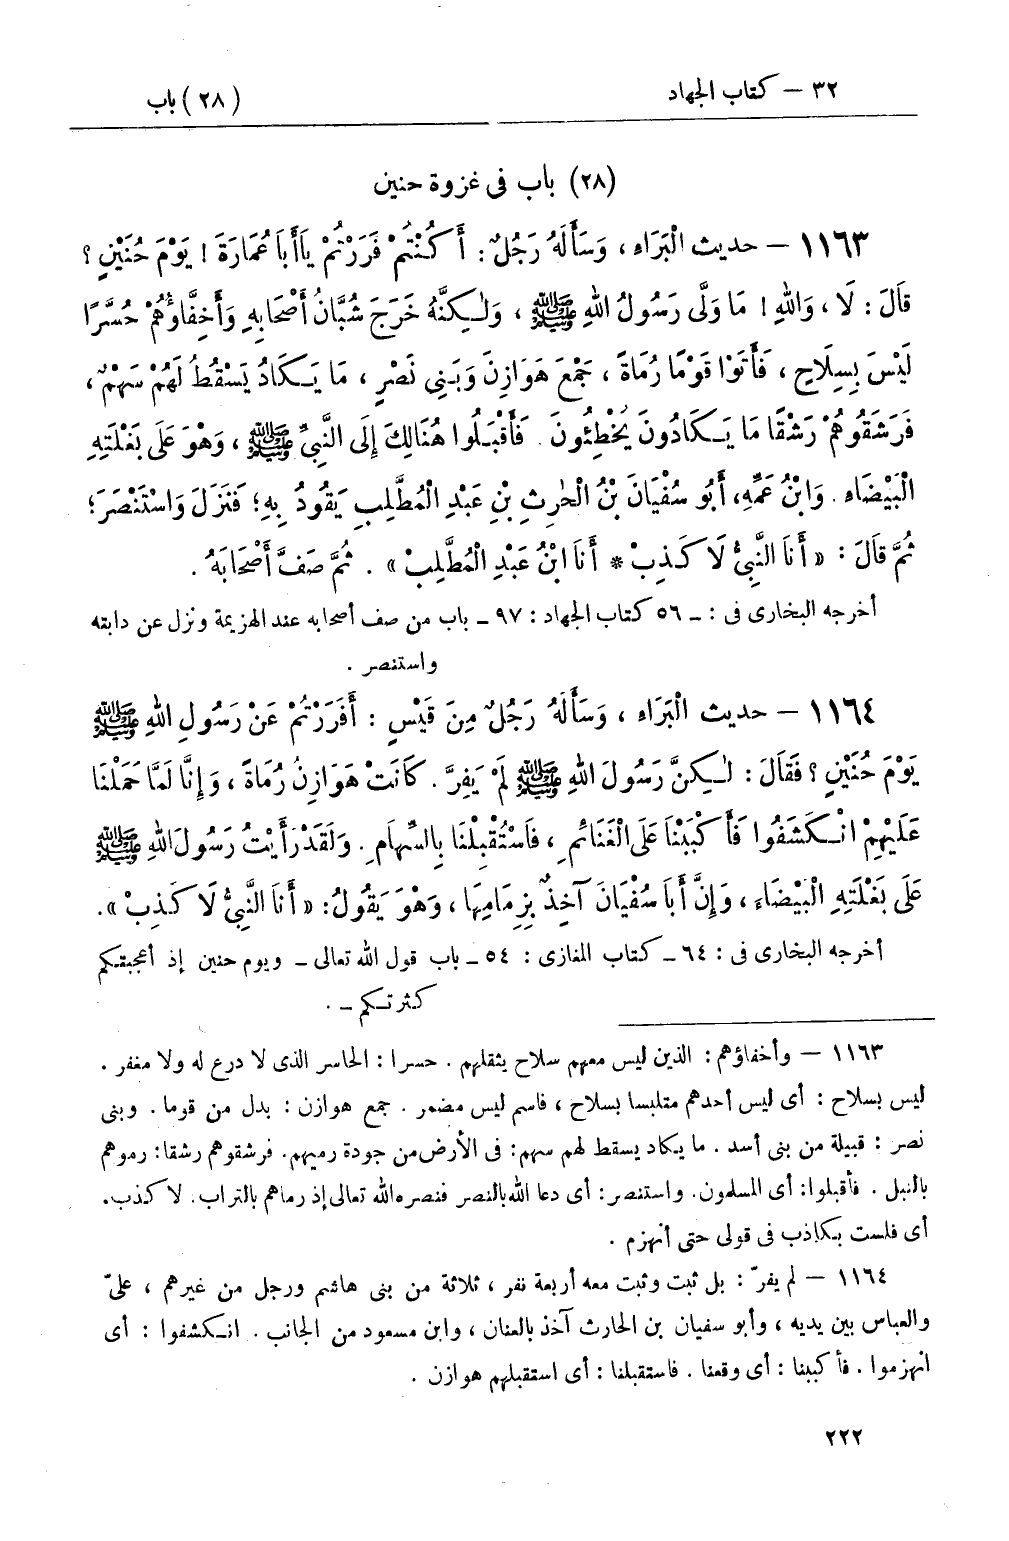 ٣٢ – كتاب الجهاد
(٢٨) باب
(٢٨) باب فى غزوة حنين
١١٦٣ – حديث الْبَرَاءِ، وَسَأَلَهُ رَجُلٌ: أَكُنْتُمْ فَرَرْتُمْ يَاأَبَا عُمَارَةَ ! يَوْمَ حُنَيْنٍ ؟
قَالَ: لَا، وَاللهِ! مَا وَلَّى رَسُولُ اللهِ ﷺ، وَلٰكِنَّهُ خَرَجَ شُبَّانُ أَصْحَابِهِ وَأَخِفَّاؤُهُمْ حُسَّرًا
لَيْسَ بِسِلَاحٍ، فَأَتَوْا قَوْمًا رُمَاةً، جَمْعَ هَوَازِنَ وَبَنِي نَصْرٍ، مَا يَكَادُ يَسْقُطُ لَهُمْ سَهْمٌ،
فَرَشَقُوهُمْ رَشْقًا مَا يَكَادُونَ يُخْطِئُونَ. فَأَقْبَلُوا هُنَالِكَ إِلَى النَّبِيِّ ﷺ، وَهْوَ عَلَى بَغْلَتِهِ
الْبَيْضَاءِ. وَابْنُ عَمِّهِ، أَبُو سُفْيَانَ بْنُ الْحٰرِثِ بْنِ عَبْدِ الْمُطَّلِبِ يَقُودُ بِهِ؛ فَنَزَلَ وَاسْتَنْصَرَ؛
ثُمَّ قَالَ: «أَنَا النَّبِيُّ لَا كَذِبْ * أَنَا ابْنُ عَبْدِ الْمُطَّلِبْ». ثُمَّ صَفَّ أَصْحَابَهُ.
أخرجه البخارى فى: ـ ٥٦ كتاب الجهاد: ٩٧ ـ باب من صف أصحابه عند الهزيمة ونزل عن دابته
واستنصر.
١١٦٤ – حديث الْبَرَاءِ، وَسَأَلَهُ رَجُلٌ مِنَ قَيْسٍ: أَفَرَرْتُمْ عَنْ رَسُولِ اللهِ ﷺ
يَوْمَ حُنَيْنٍ؟ فَقَالَ: لٰكِنَّ رَسُولَ اللهِ ﷺ لَمْ يَفِرَّ. كَانَتْ هَوَازِنُ رُمَاةً، وَإِنَّا لَمَّا حَمَلْنَا
عَلَيْهِمْ انْكَشَفُوا فَأَكْبَبْنَا عَلَى الْغَنَائِمِ، فَاسْتُقْبِلْنَا بِالسِّهَامِ. وَلَقَدْ رَأَيْتُ رَسُولَ اللهِ ﷺ
عَلَى بَغْلَتِهِ الْبَيْضَاءِ، وَإِنَّ أَبَا سُفْيَانَ آخِذٌ بِزِمَامِهَا، وَهْوَ يَقُولُ: «أَنَا النَّبِيُّ لَا كَذِبْ».
أخرجه البخارى فى: ٦٤ ـ كتاب المغازى: ٥٤ ـ باب قول الله تعالى ـ ويوم حنين إذ أعجبتكم
كثرتكم ـ.
١١٦٣ – وأخفاؤهم: الذين ليس معهم سلاح يثقلهم. حسرا: الحاسر الذى لا درع له ولا مغفر.
ليس بسلاح: أى ليس أحدهم متلبسا بسلاح، فاسم ليس مضمر. جمع هوازن: بدل من قوما. وبنى
نصر: قبيلة من بنى أسد. ما يكاد يسقط لهم سهم: فى الأرض من جودة رميهم. فرشقوهم رشقا: رموهم
بالنبل. فأقبلوا: أى المسلمون. واستنصر: أى دعا الله بالنصر فنصره الله تعالى إذ رماهم بالتراب. لا كذب.
أى فلست بكاذب فى قولى حتى أنهزم.
١١٦٤ – لم يفرّ: بل ثبت وثبت معه أربعة نفر، ثلاثة من بنى هاشم ورجل من غيرهم، علىّ
والعباس بين يديه، وأبو سفيان بن الحارث آخذ بالعنان، وابن مسعود من الجانب. انكشفوا: أى
انهزموا. فأكببنا: أى وقعنا. فاستقبلنا: أى استقبلهم هوازن.
٢٢٢